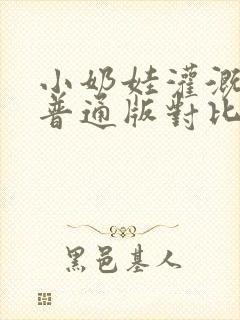 小奶娃灌溉
普通版對比
黑邑基人